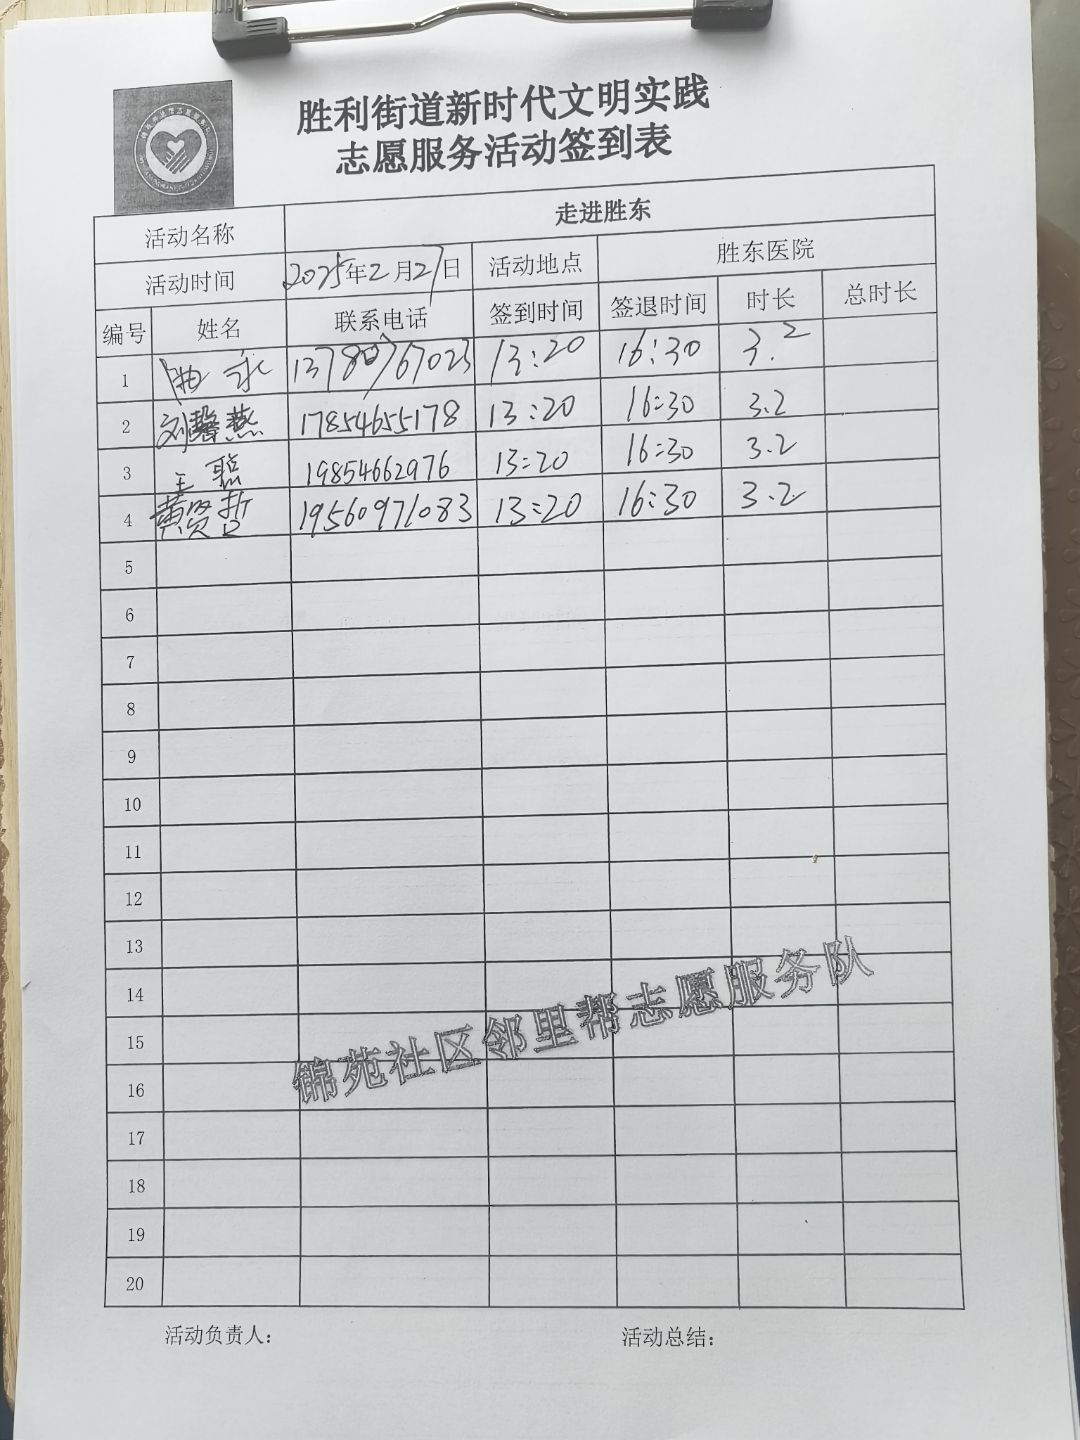 胜利街道新时代文明实践
志愿服务活动签到表
活动名称 走进胜东
活动时间 2025年2月27日 活动地点 胜东医院
编号 姓名 联系电话 签到时间 签退时间 时长 总时长
1 永 13780767023 13:20 16:30 3.2
2 刘馨燕 17854655178 13:20 16:30 3.2
3 王聪 19854662976 13:20 16:30 3.2
4 黄贤哲 19560971083 13:20 16:30 3.2
5
6
7
8
9
10
11
12
13
14
15
16
17
18
19
20
锦苑社区邻里帮志愿服务队
活动负责人: 活动总结: